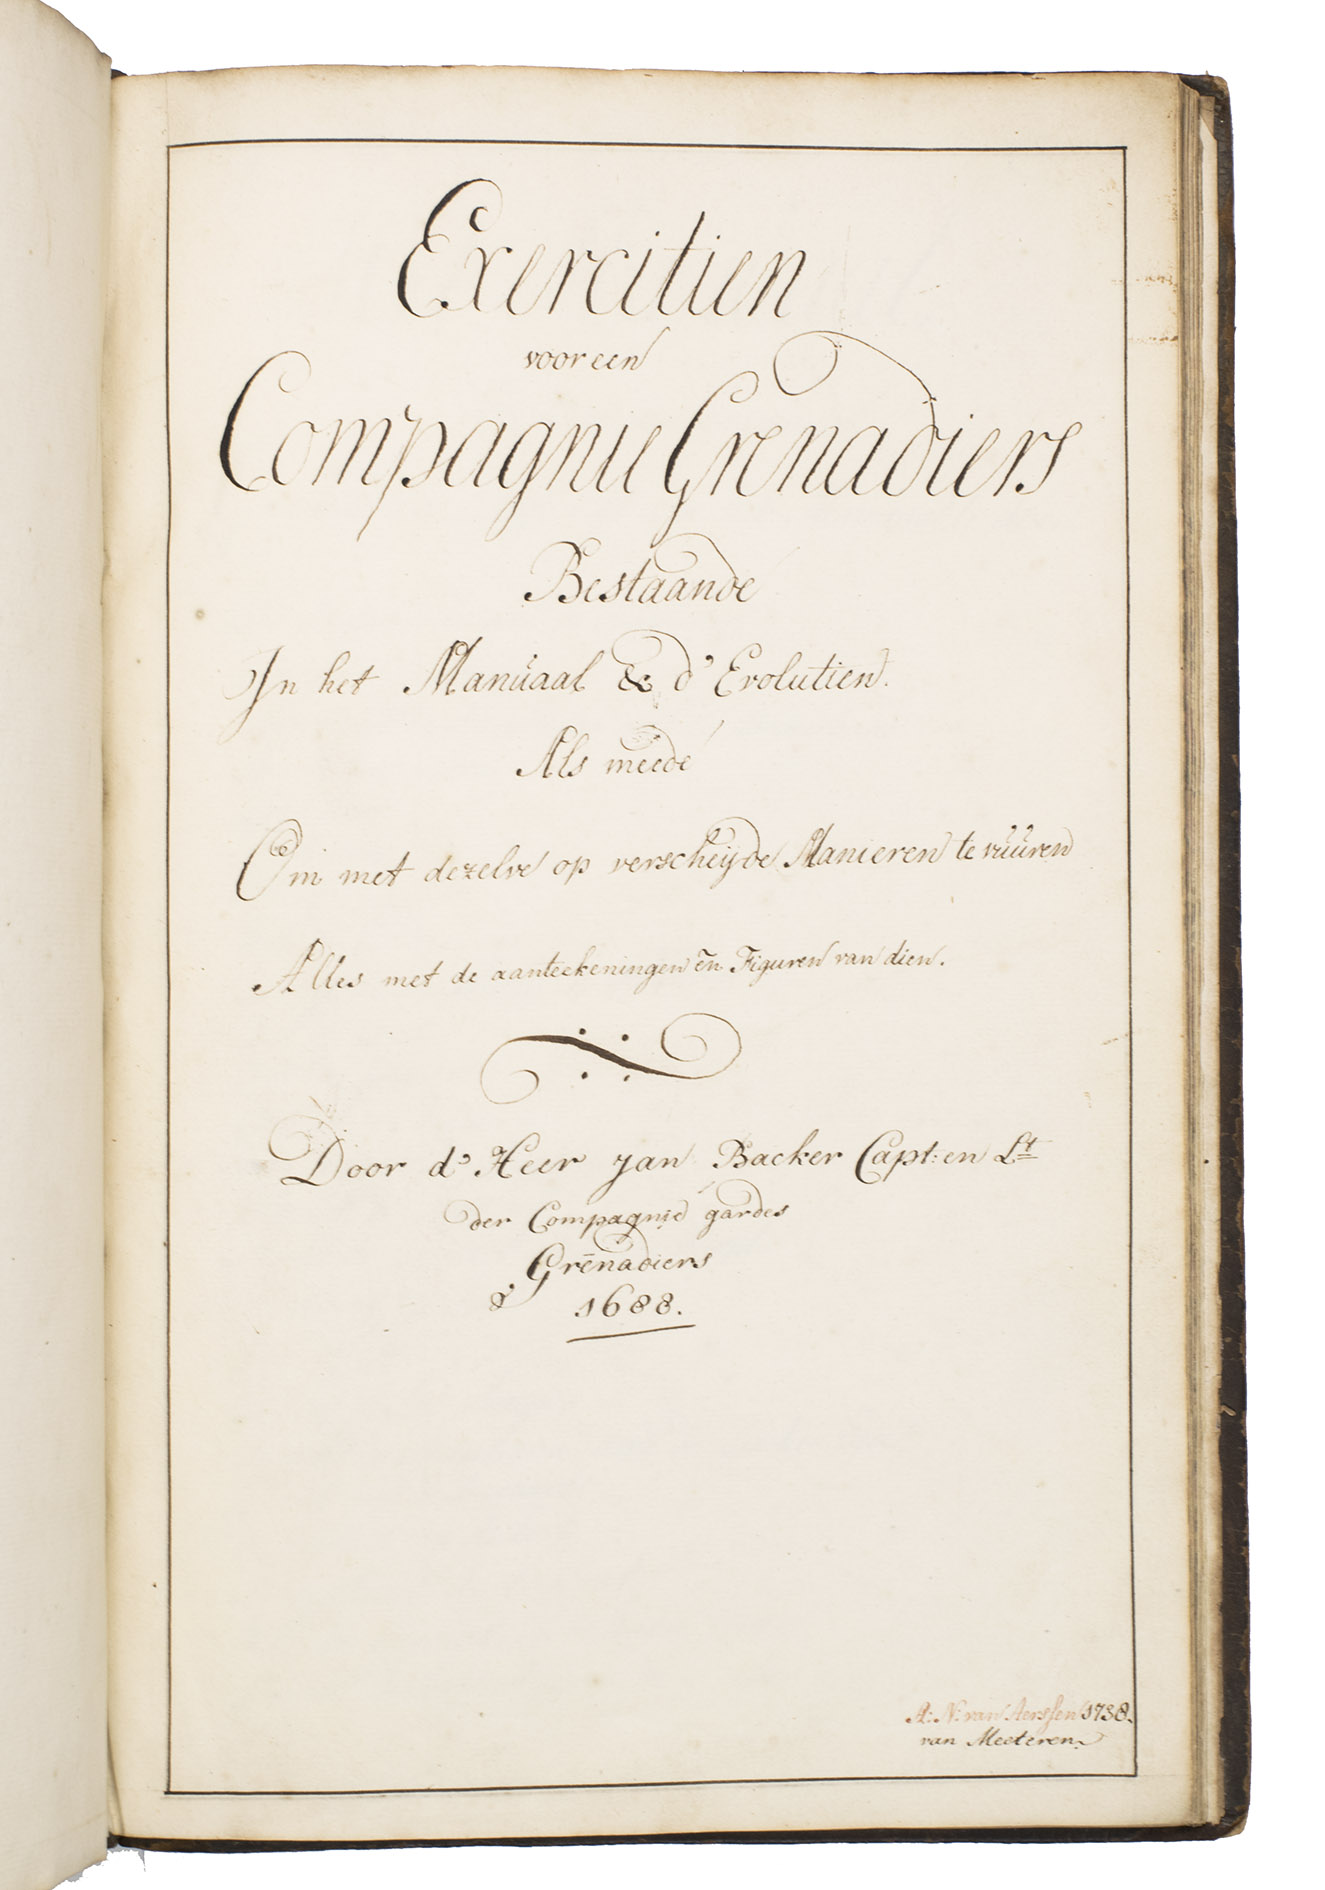 Exercitien
voor een
Compagnie Grenadiers
Bestaande
In het Manuaal & d' Evolutien.
Als meede
Om met dezelve op verscheÿde Manieren te vuuren
Alles met de aanteekeningen en Figuren van dien.
Door d' Heer Jan Backer Capt: en Lt
der Compagnie gardes
Grenadiers
1688.
A: N: van Aerssen 1738.
van Meeteren.